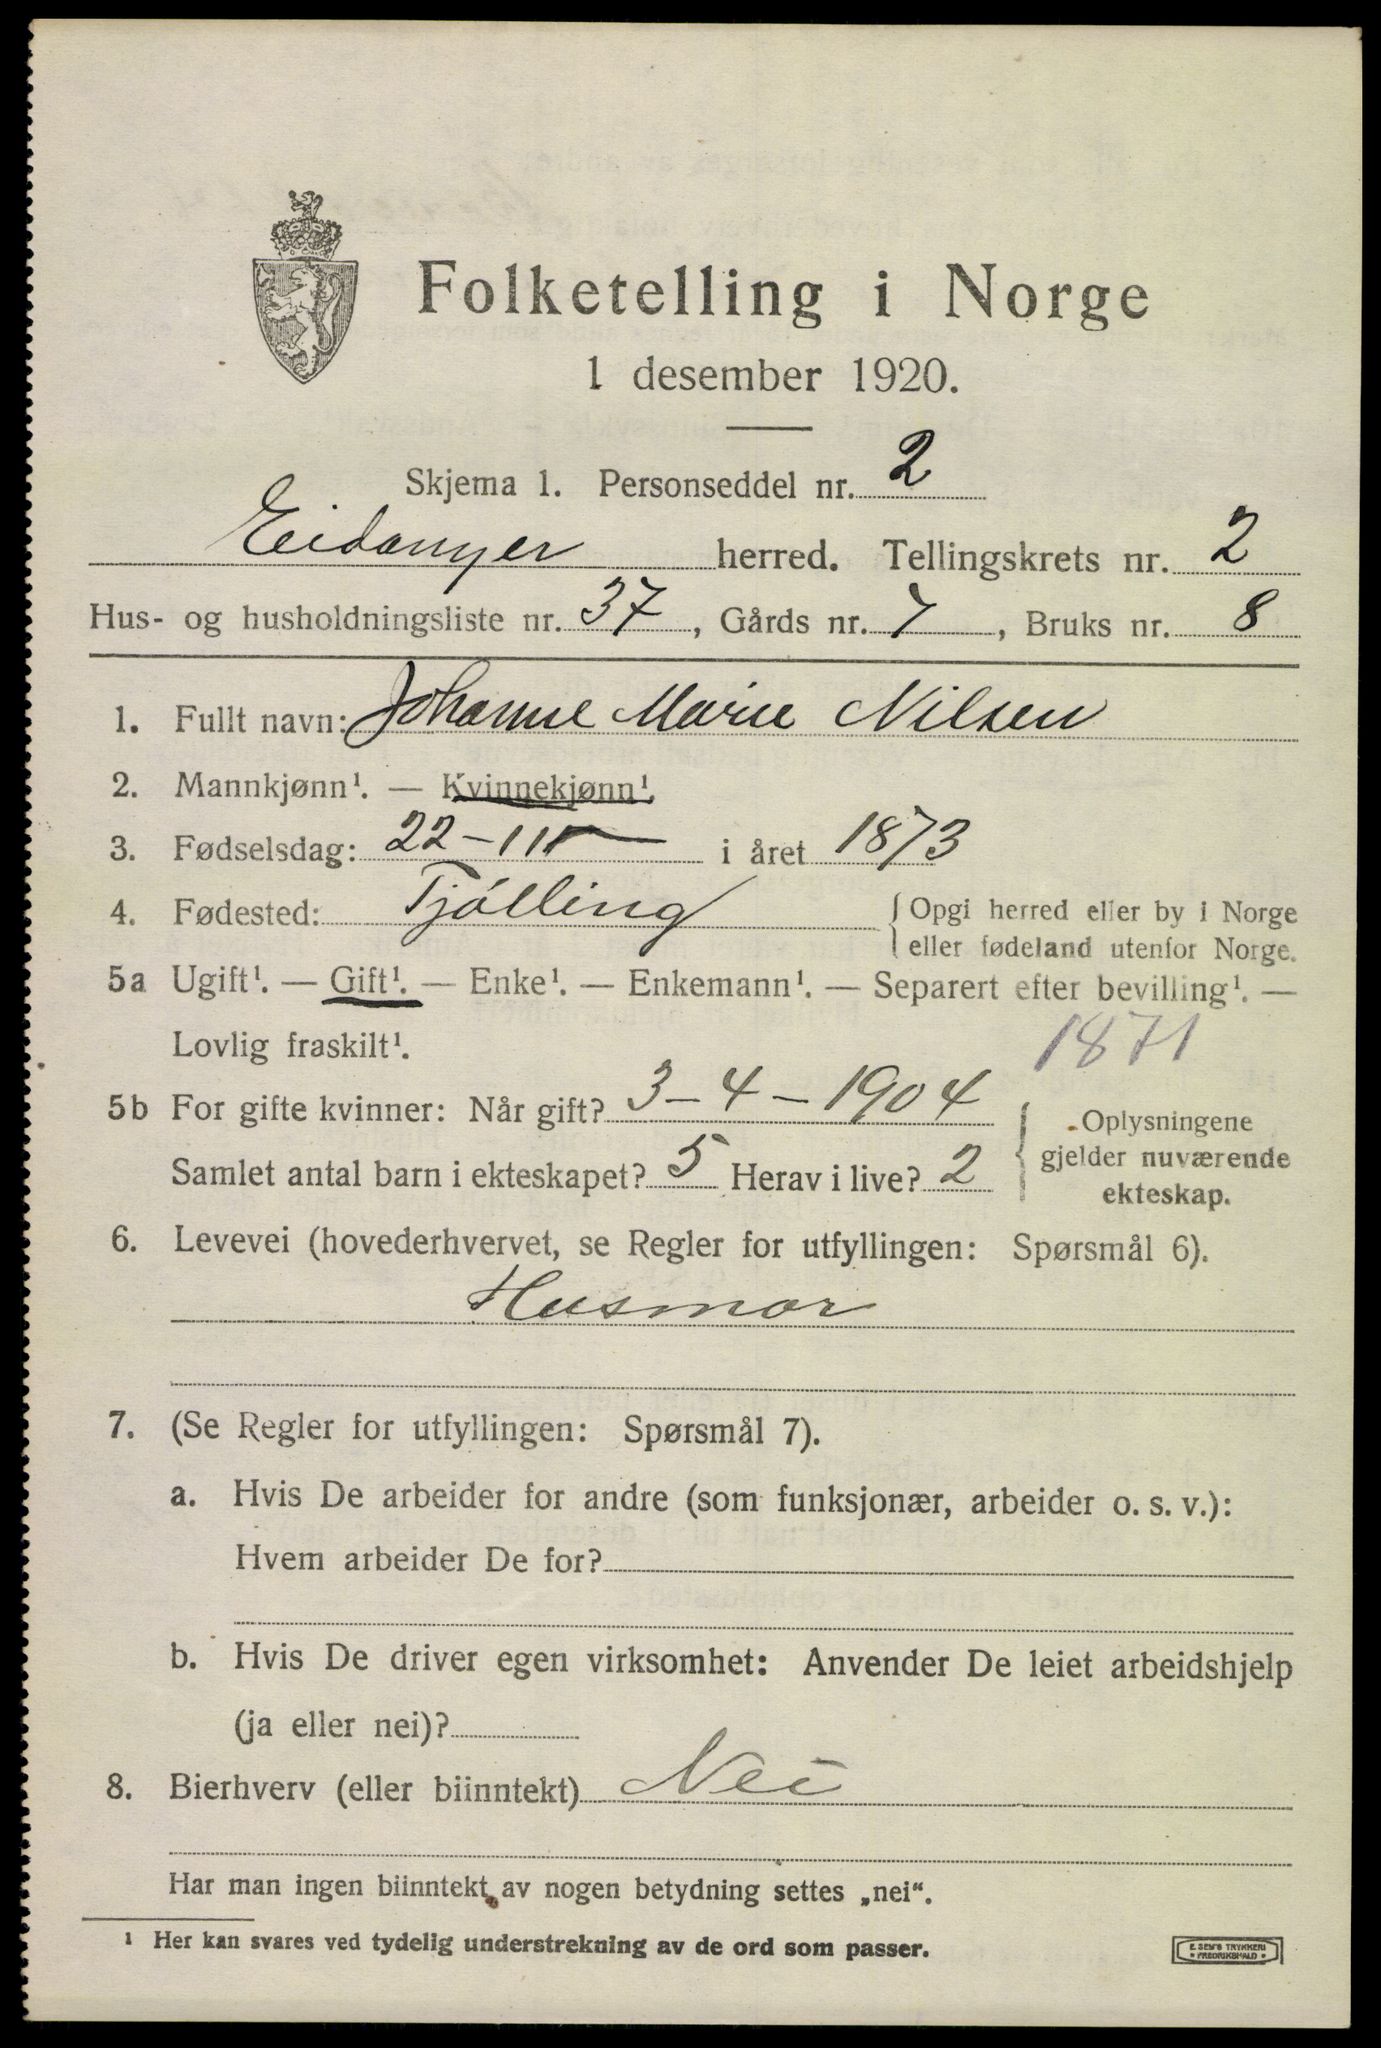 Folketelling i Norge
1 desember 1920.
Skjema 1. Personseddel nr. 2
Eidanger herred. Tellingskrets nr. 2
Hus- og husholdningsliste nr. 37, Gårds nr. 7, Bruks nr. 8
1. Fullt navn: Johanne Marie Nilsen
2. Mannkjønn¹. — Kvinnekjønn¹.
3. Fødselsdag: 22 – i året 1873
4. Fødested: Tjölling {Opgi herred eller by i Norge
eller fødeland utenfor Norge.
5a Ugift¹. — Gift¹. — Enke¹. — Enkemann¹. — Separert efter bevilling¹. —
Lovlig fraskilt¹. 1871
5b For gifte kvinner: Når gift? 3 – 4 – 1904
Samlet antal barn i ekteskapet? 5 Herav i live? 2
{Oplysningene
gjelder nuværende
ekteskap.
6. Levevei (hovederhvervet, se Regler for utfyllingen: Spørsmål 6).
Husmor
7. (Se Regler for utfyllingen: Spørsmål 7).
a. Hvis De arbeider for andre (som funksjonær, arbeider o. s. v.):
Hvem arbeider De for?
b. Hvis De driver egen virksomhet: Anvender De leiet arbeidshjelp
(ja eller nei)?
8. Bierhverv (eller biinntekt) Nei
Har man ingen biinntekt av nogen betydning settes „nei“.
¹ Her kan svares ved tydelig understrekning av de ord som passer.
E. SEM'S TRYKKERI
• FREDRIKSHALD •